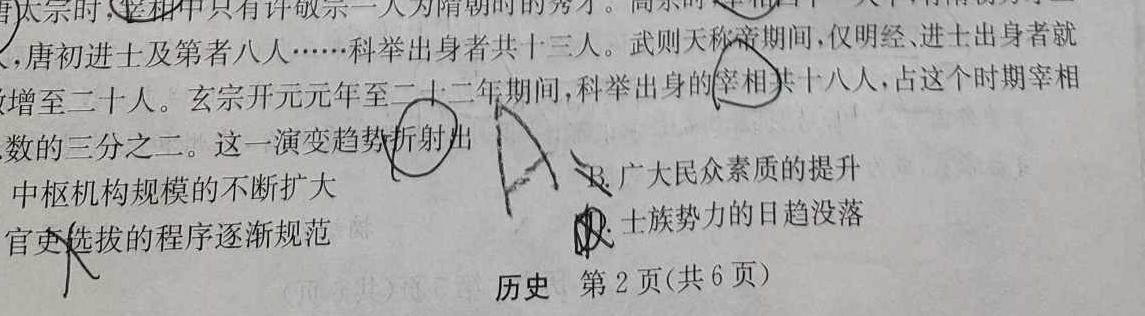 唐太宗时,宰相中只有许敬宗一人为隋朝时的秀才。高宗时
,唐初进士及第者八人……科举出身者共十三人。武则天称帝期间,仅明经、进士出身者就
增至二十人。玄宗开元元年至二十二年期间,科举出身的宰相共十八人,占这个时期宰相
数的三分之二。这一演变趋势折射出
A
中枢机构规模的不断扩大
B. 广大民众素质的提升
官吏选拔的程序逐渐规范
D. 士族势力的日趋没落
历史 第2页(共6页)